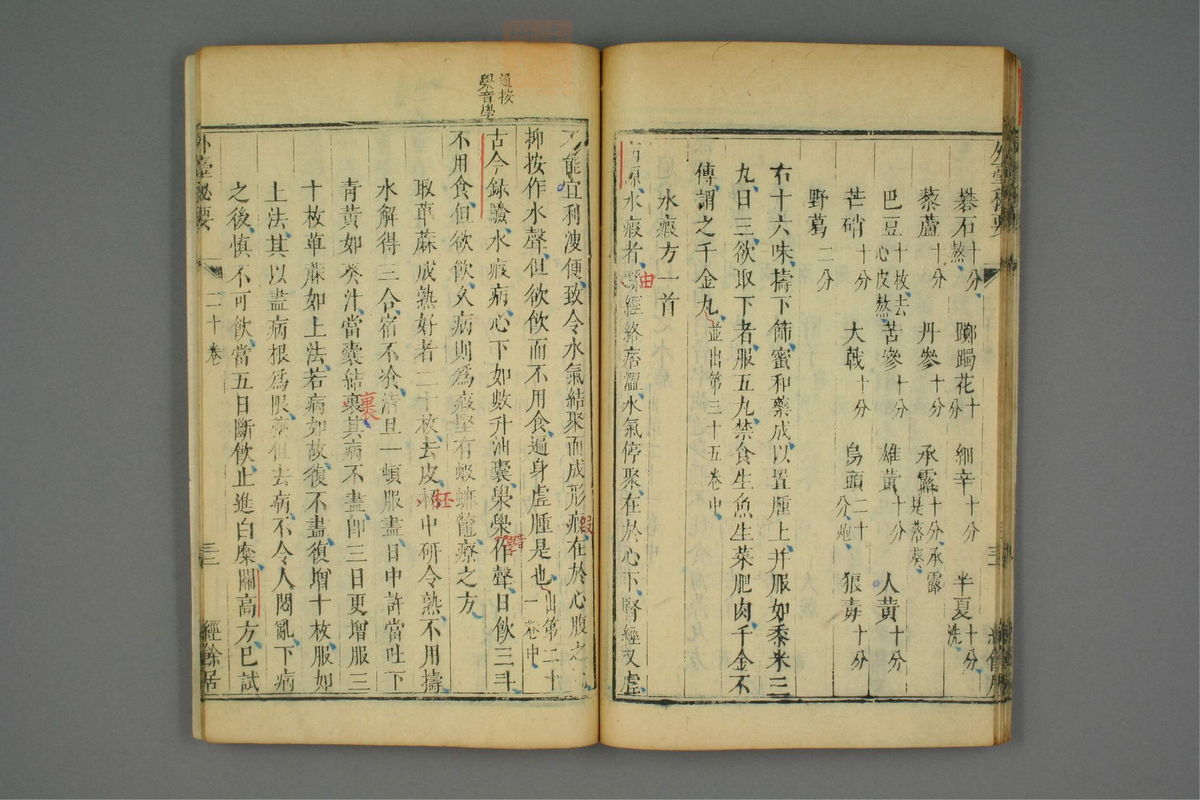 外臺秘要
礬石十分熬 躑躅花十分 細辛十分 半夏十分洗
藜蘆十分 丹參十分 承露十分承露是落葵
巴豆十枚去心皮熬 苦參十分 雄黃十分 人黃十分
芒硝十分 大戟十分 烏頭二十分炮 狼毒十分
野葛二分
右十六味擣下篩蜜和藥成以置腫上并服如黍米三
丸日三欲取下者服五丸禁食生魚生菜肥肉千金不
傳謂之千金丸並出第三十五卷中
水瘕方一首
病源水瘕者由經絡痞澀水氣停聚在於心下腎經又虛
不能宣利溲便致令水氣結聚而成形瘕在於心腹之
抑按作水聲但欲飲而不用食遍身虛腫是也出第二十一卷中
古今錄驗水瘕病心下如數升油囊㶅㶅作聲日飲三斗
不用食但欲飲久病則為瘕堅有蝦蟆鼈療之方
取萆蔴成熟好者二十枚去皮杯中研令熟不用擣
水解得三合宿不飡清旦一頓服盡日中許當吐下
青黃如葵汁當囊結裹其病不盡即三日更增服三
十枚萆蔴如上法若病如故復不盡復增十枚服如
上法其以盡病根為限藥但去病不令人悶亂下病
之後慎不可飲當五日斷飲止進白糜闕高方已試
外臺秘要 二十卷 三 經餘居
通按
㶅音學